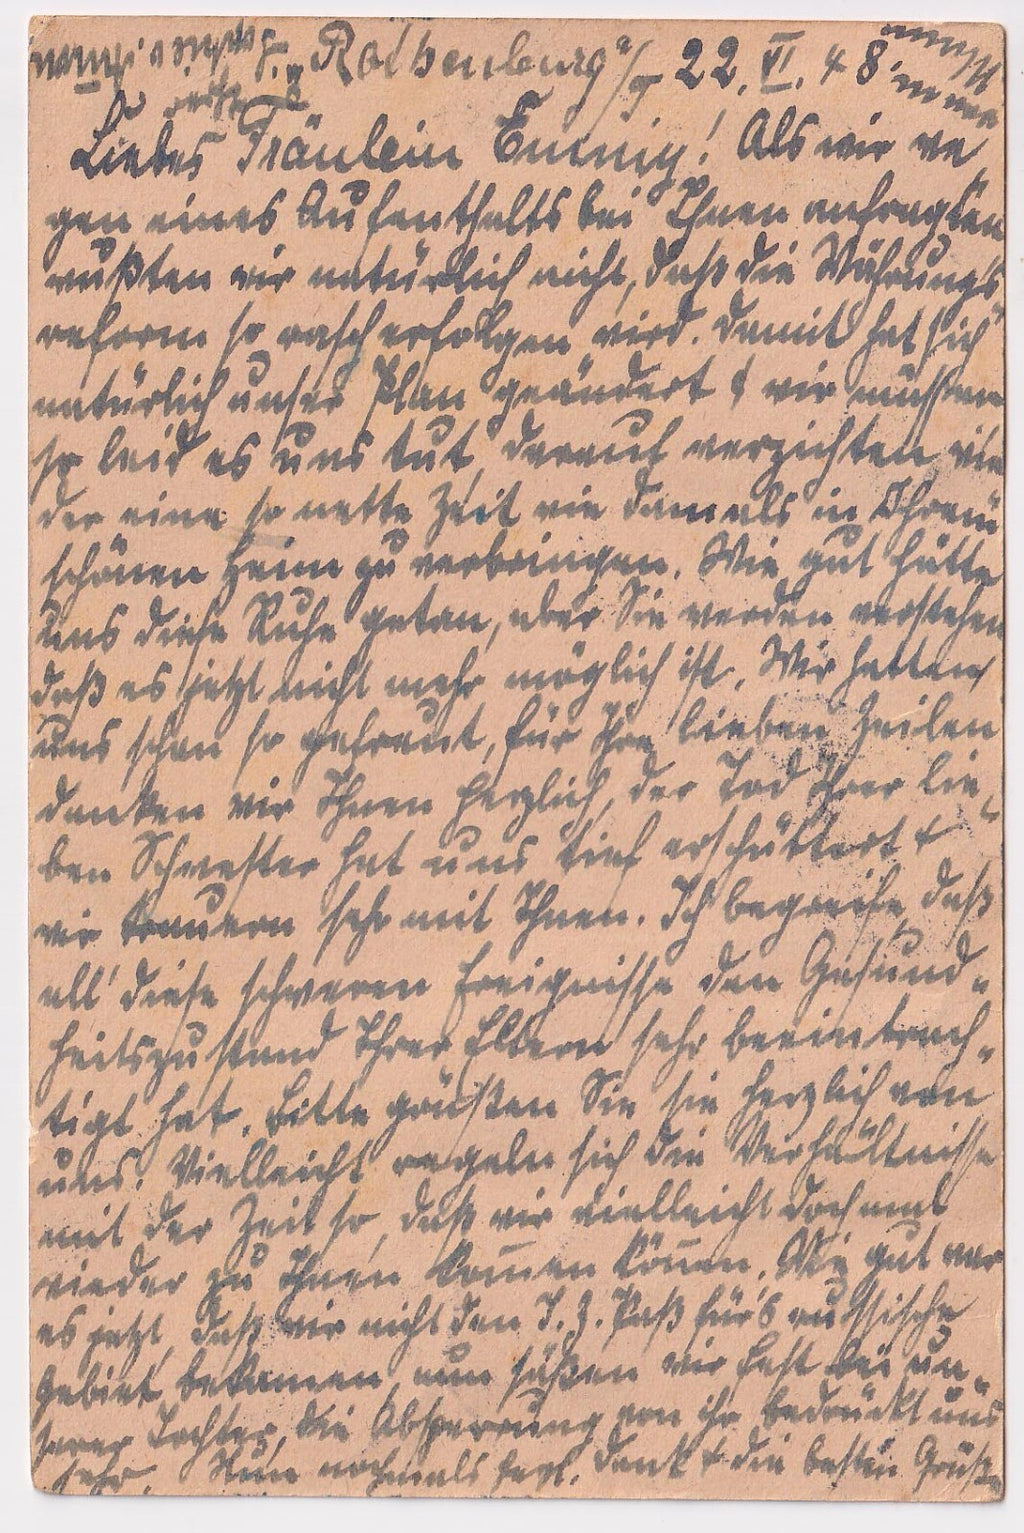 Rothenburg o/T 22. VI. 48.
Liebes Fräulein Emmy! Als wir we
gen eines Aufenthalts bei Ihnen anfragten
wußten wir natürlich nicht, daß die Währungs
reform so rasch erfolgen wird. Damit hat sich
natürlich unser Plan geändert & wir müssen
so leid es uns tut, darauf verzichten wie
der eine so nette Zeit wie damals in Ihrem
schönen Heim zu verbringen. Wie gut hätte
uns diese Ruhe getan, aber Sie werden verstehen
daß es jetzt nicht mehr möglich ist. Wir hatten
uns schon so gefreut, für Ihre lieben Zeilen
danken wir Ihnen herzlich, der Tod Ihrer lie-
ben Schwester hat uns tief erschüttert &
wir trauern sehr mit Ihnen. Ich begreife, daß
all' diese schweren Ereignisse den Gesund-
heitszustand Ihrer Eltern sehr beeinträch-
tigt hat. Bitte grüßen Sie sie herzlich von
uns. Vielleicht regeln sich die Verhältnisse
mit der Zeit so, daß wir vielleicht doch mal
wieder zu Ihnen kom̄en kön̄en. Wie gut war
es jetzt, daß wir nicht den I. Z. Paß für's russische
Gebiet bekamen, nun säßen wir fest bei un-
serer Tochter, die Absperrung von ihr bedrückt uns
sehr. Nun nochmals herzl. Dank & die besten Grüße